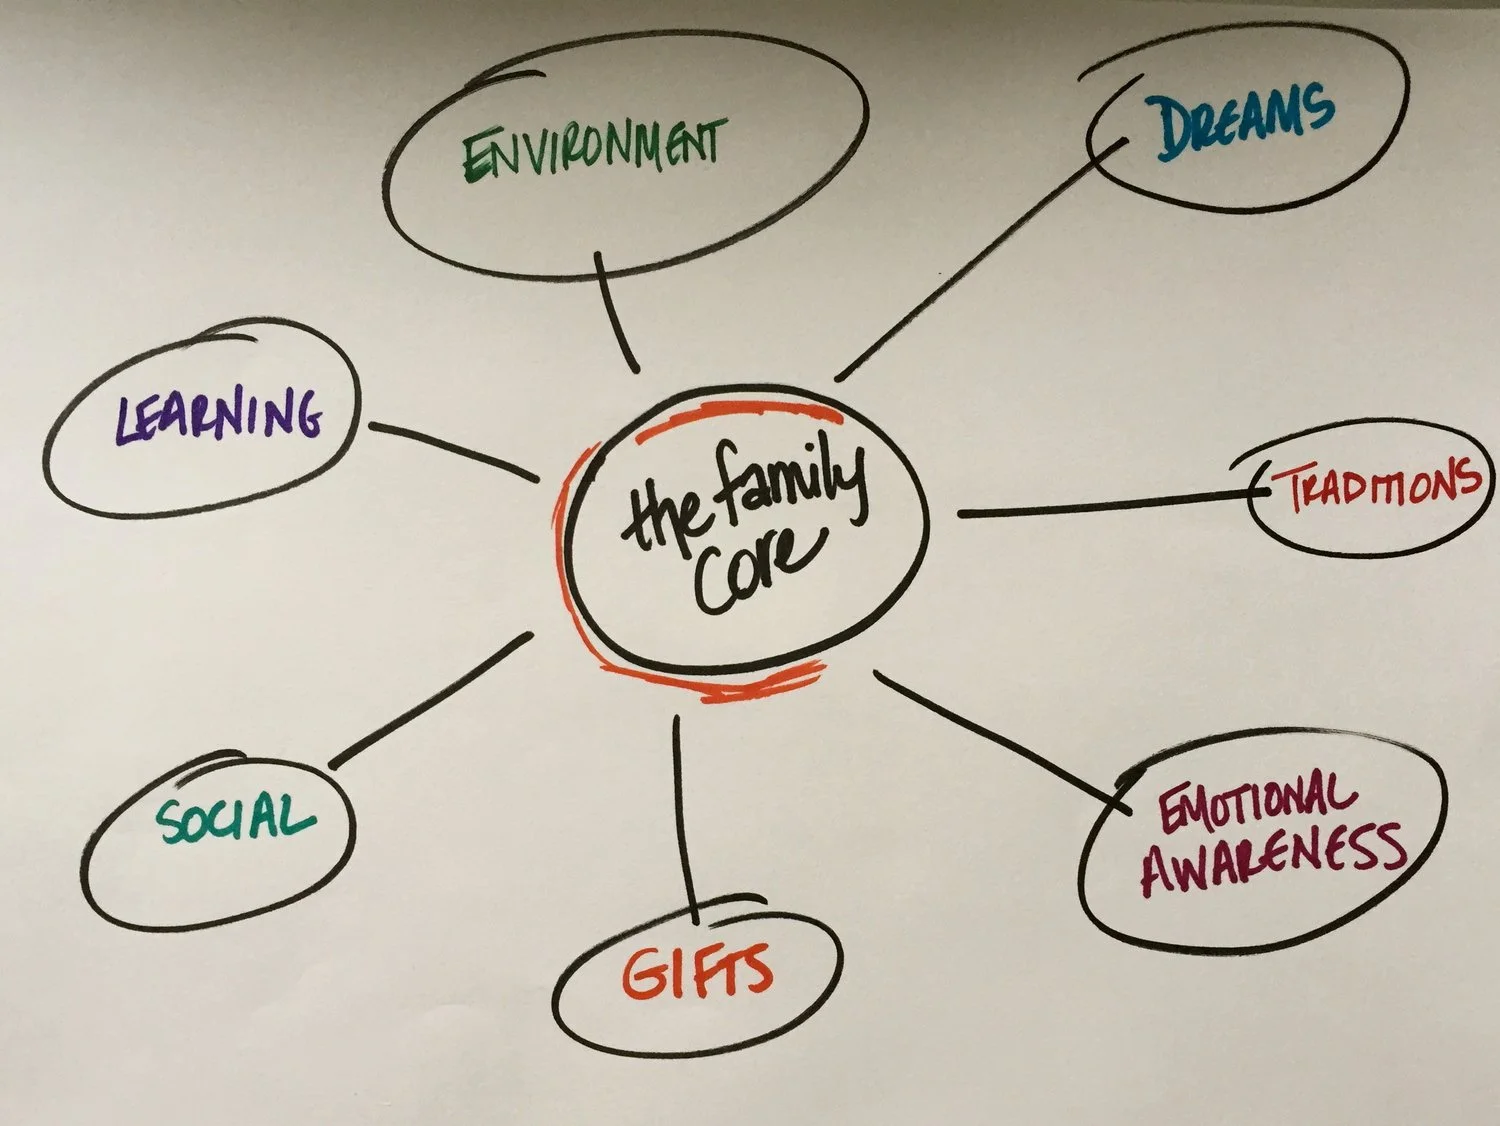 ENVIRONMENT
DREAMS
LEARNING
the family
core
TRADITIONS
SOCIAL
EMOTIONAL
AWARENESS
GIFTS